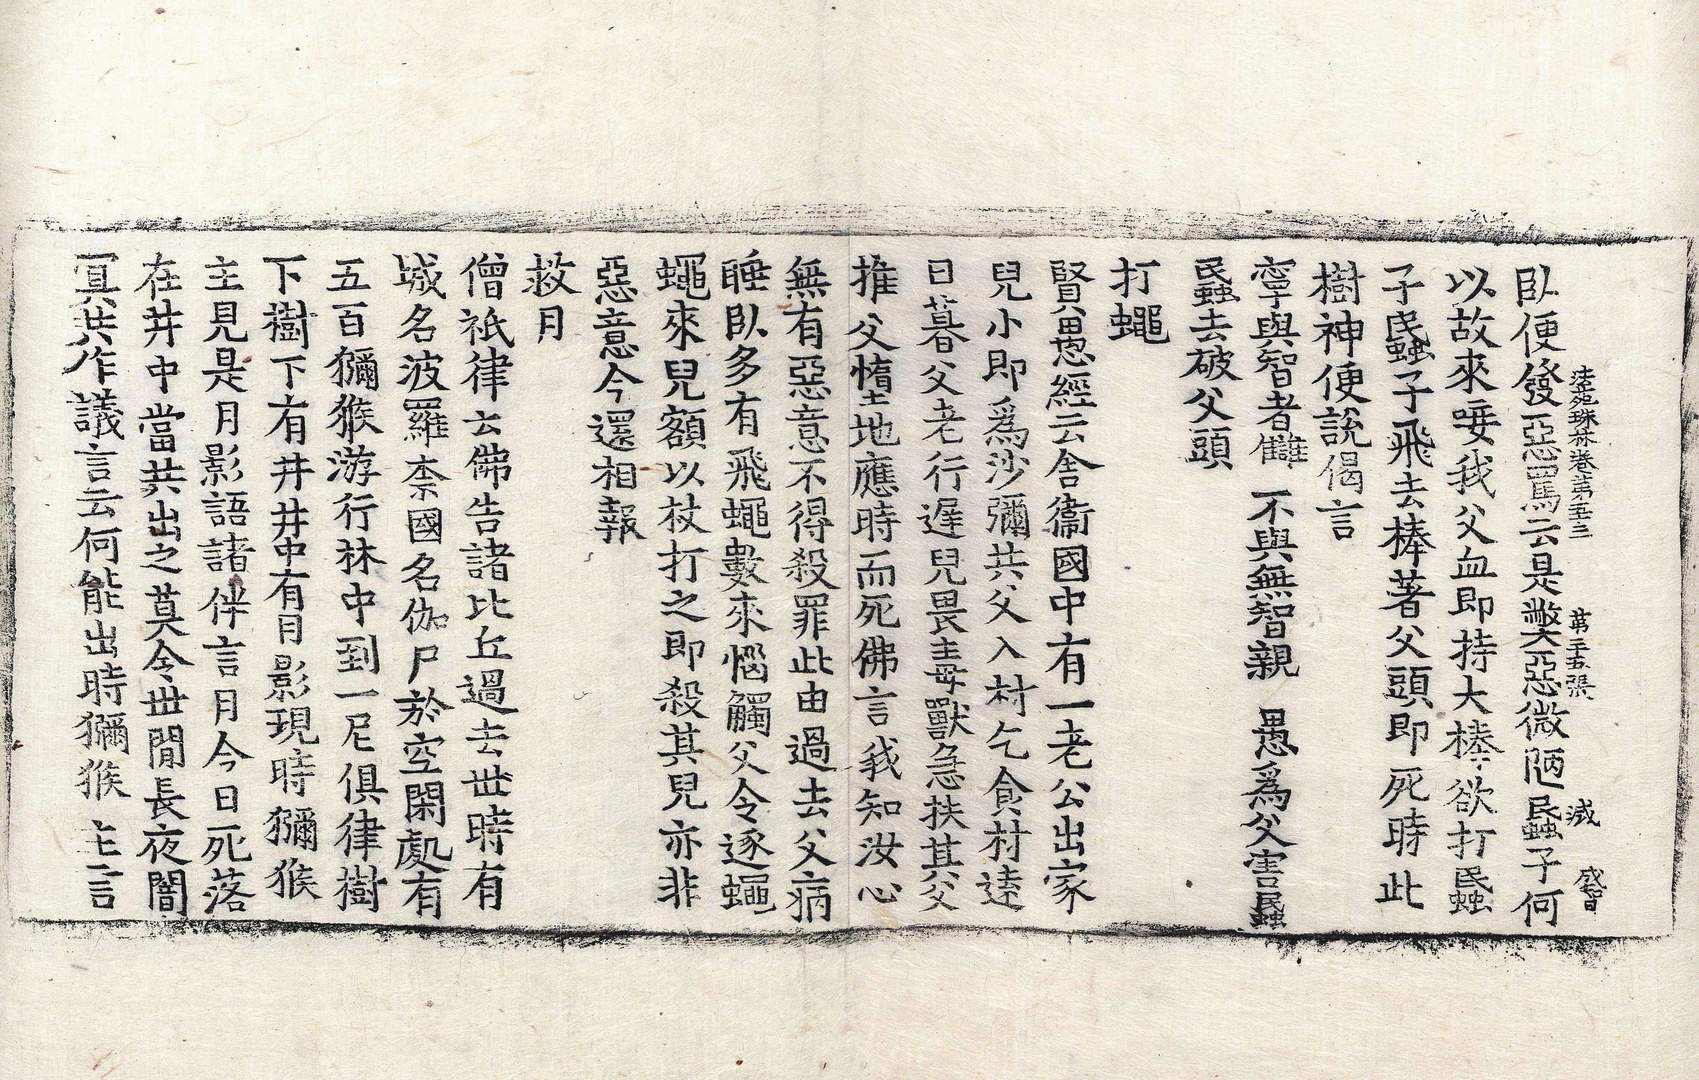 法苑珠林卷第五十三 第二十五張 滅 盛智
臥便發惡罵云是弊惡微陋䖟子何
以故來唼我父血即持大棒欲打䖟
子䖟子飛去棒著父頭即死時此
樹神便說偈言
寧與智者讎 不與無智親 愚爲父害䖟
䖟去破父頭
打蠅
賢愚經云舍衞國中有一老公出家
兒小即爲沙彌共父入村乞食村逺
日暮父老行遲兒畏毒獸急扶其父
推父墮地應時而死佛言我知汝心
無有惡意不得殺罪此由過去父病
睡臥多有飛蠅數來惱觸父令逐蠅
蠅來兒額以杖打之即殺其兒亦非
惡意今還相報
救月
僧祇律云佛告諸比丘過去世時有
城名波羅柰國名伽尸於空閑處有
五百獼猴游行林中到一尼俱律樹
下樹下有井井中有月影現時獼猴
主見是月影語諸伴言月今日死落
在井中當共出之莫令世閒長夜闇
冥共作議言云何能出時獼猴主言